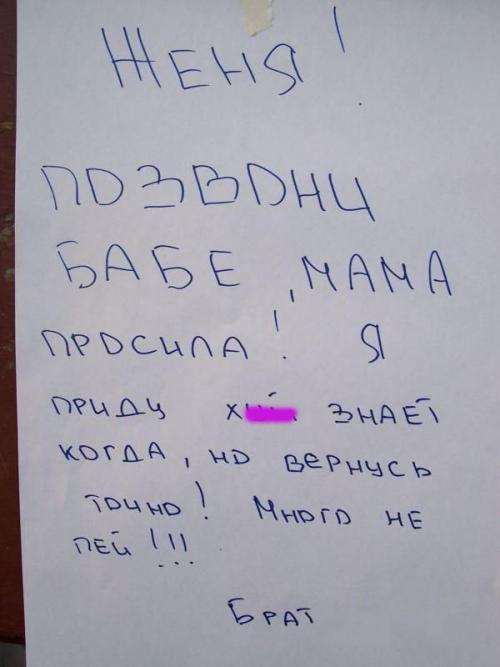 ЖЕНЯ!
ПОЗВОНИ
БАБЕ, МАМА
ПРОСИЛА! Я
ПРИДУ ЗНАЕТ
КОГДА, НО ВЕРНУСЬ
ТОЧНО! МНОГО НЕ
ПЕЙ!!!
БРАТ